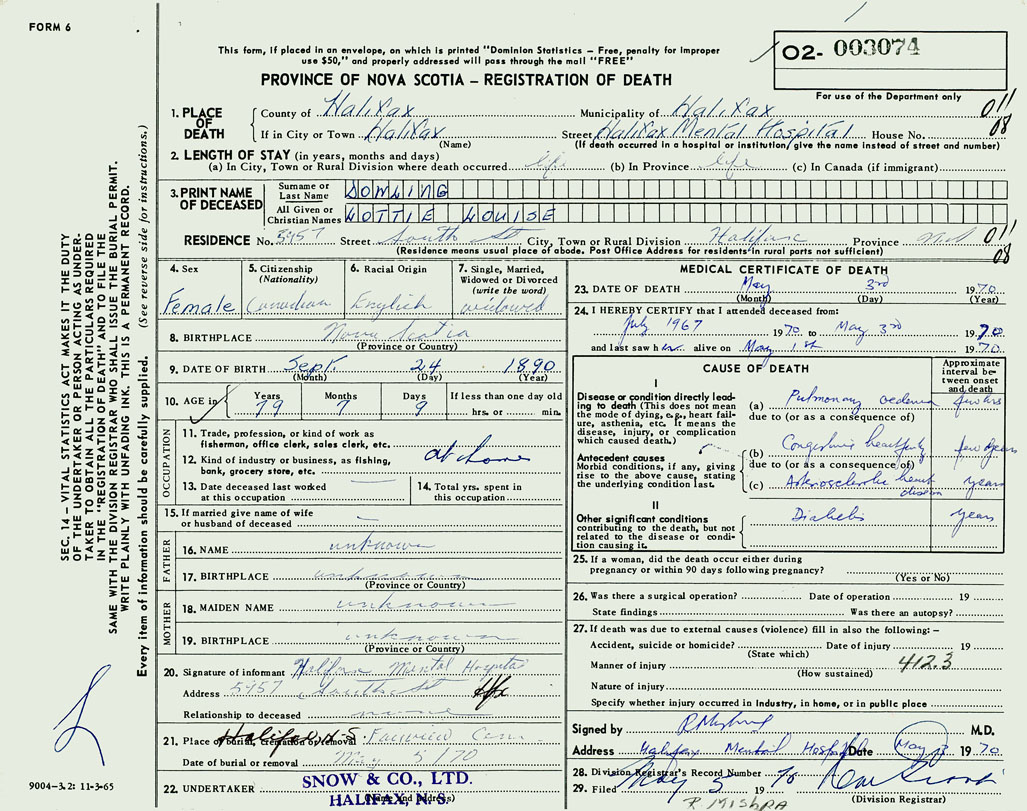 FORM 6
This form, if placed in an envelope, on which is printed "Dominion Statistics – Free, penalty for improper
use $50," and properly addressed will pass through the mail "FREE"
PROVINCE OF NOVA SCOTIA – REGISTRATION OF DEATH
O2- 003074
For use of the Department only
1. PLACE OF DEATH
County of Halifax Municipality of Halifax 011
If in City or Town Halifax Street Halifax Mental Hospital House No. 08
(Name) (If death occurred in a hospital or institution, give the name instead of street and number)
2. LENGTH OF STAY (in years, months and days)
(a) In City, Town or Rural Division where death occurred life (b) In Province life (c) In Canada (if immigrant)
3. PRINT NAME OF DECEASED
Surname or Last Name DOWLING
All Given or Christian Names LOTTIE LOUISE
RESIDENCE No. 5957 Street South St City, Town or Rural Division Halifax Province N.S. 011
(Residence means usual place of abode. Post Office Address for residents in rural parts not sufficient) 08
4. Sex Female
5. Citizenship (Nationality) Canadian
6. Racial Origin English
7. Single, Married, Widowed or Divorced (write the word) widowed
8. BIRTHPLACE Nova Scotia
(Province or Country)
9. DATE OF BIRTH Sept. 24 1890
(Month) (Day) (Year)
10. AGE in Years 79 Months 7 Days 9 If less than one day old
hrs. or min.
OCCUPATION
11. Trade, profession, or kind of work as
fisherman, office clerk, sales clerk, etc.
12. Kind of industry or business, as fishing, at home
bank, grocery store, etc.
13. Date deceased last worked
at this occupation
14. Total yrs. spent in
this occupation
15. If married give name of wife
or husband of deceased
FATHER
16. NAME unknown
17. BIRTHPLACE unknown
(Province or Country)
MOTHER
18. MAIDEN NAME unknown
19. BIRTHPLACE unknown
(Province or Country)
20. Signature of informant Halifax Mental Hospital
Address 5957 South St Hfx
Relationship to deceased none
21. Place of burial, cremation or removal Halifax N.S. Fairview Cem
Date of burial or removal May 5/70
22. UNDERTAKER SNOW & CO., LTD.
(Name and Address)
HALIFAX, N.S.
MEDICAL CERTIFICATE OF DEATH
23. DATE OF DEATH May 3rd 1970
(Month) (Day) (Year)
24. I HEREBY CERTIFY that I attended deceased from:
July 1967 1970 to May 3rd 1970
and last saw her alive on May 1st 1970
CAUSE OF DEATH
Approximate interval between onset and death
I
Disease or condition directly leading to death (This does not mean the mode of dying, e.g., heart failure, asthenia, etc. It means the disease, injury, or complication which caused death.)
(a) Pulmonary oedema few hrs
due to (or as a consequence of)
Antecedent causes
Morbid conditions, if any, giving rise to the above cause, stating the underlying condition last.
(b) Congestive heart few
due to (or as a consequence of)
(c) Arteriosclerotic heart disease years
II
Other significant conditions contributing to the death, but not related to the disease or condition causing it.
Diabetes years
25. If a woman, did the death occur either during
pregnancy or within 90 days following pregnancy?
(Yes or No)
26. Was there a surgical operation? Date of operation 19
State findings Was there an autopsy?
27. If death was due to external causes (violence) fill in also the following: –
Accident, suicide or homicide? Date of injury 19
(State which)
Manner of injury 412.3
(How sustained)
Nature of injury
Specify whether injury occurred in industry, in home, or in public place
Signed by R Mishra M.D.
Address Halifax Mental Hospital Date May 3 1970
28. Division Registrar's Record Number
29. Filed May 5 1970
(Division Registrar)
R. MISHRA
SEC. 14 – VITAL STATISTICS ACT MAKES IT THE DUTY
OF THE UNDERTAKER OR PERSON ACTING AS UNDER-
TAKER TO OBTAIN ALL THE PARTICULARS REQUIRED
IN THE "REGISTRATION OF DEATH" AND TO FILE THE
SAME WITH THE DIVISION REGISTRAR WHO SHALL ISSUE THE BURIAL PERMIT.
WRITE PLAINLY WITH UNFADING INK. THIS IS A PERMANENT RECORD.
Every item of information should be carefully supplied. (See reverse side for instructions.)
9004-3.2: 11-3-65